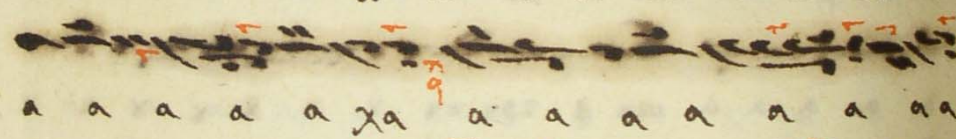 α α α α α χα α α α α α α α α